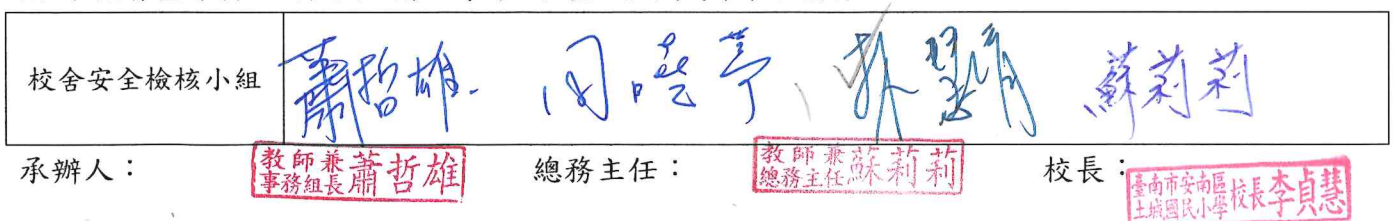 校舍安全檢核小組 蕭哲雄 蘇莉莉
承辦人： 教師兼事務組長蕭哲雄 總務主任： 教師兼總務主任蘇莉莉 校長： 臺南市安南區土城國民小學校長李貞慧